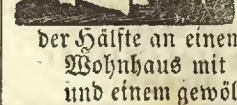 der Hälfte an einem
Wohnhaus mit
und einem gewöl